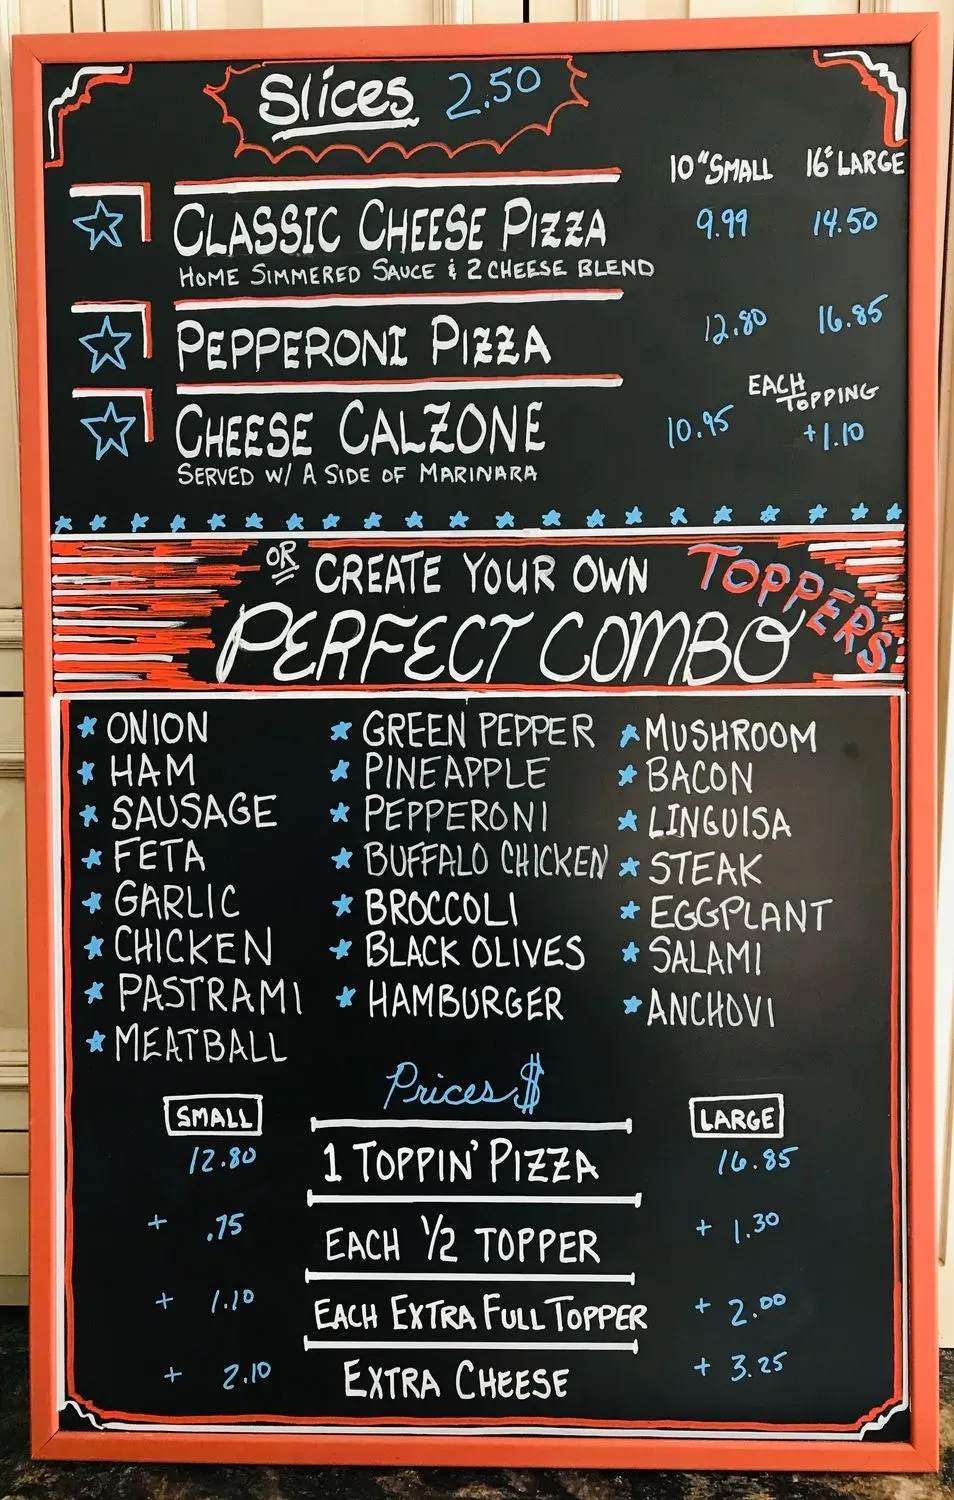 Slices 2.50
10" SMALL 16" LARGE
CLASSIC CHEESE PIZZA 9.99 14.50
HOME SIMMERED SAUCE & 2 CHEESE BLEND
PEPPERONI PIZZA 12.80 16.85
EACH TOPPING
CHEESE CALZONE 10.95 +1.10
SERVED W/ A SIDE OF MARINARA
OR CREATE YOUR OWN
PERFECT COMBO
TOPPERS
ONION GREEN PEPPER MUSHROOM
HAM PINEAPPLE BACON
SAUSAGE PEPPERONI LINGUISA
FETA BUFFALO CHICKEN STEAK
GARLIC BROCCOLI EGGPLANT
CHICKEN BLACK OLIVES SALAMI
PASTRAMI HAMBURGER ANCHOVI
MEATBALL
Prices $
SMALL LARGE
12.80 1 TOPPIN' PIZZA 16.85
+ .75 EACH ½ TOPPER + 1.30
+ 1.10 EACH EXTRA FULL TOPPER + 2.00
+ 2.10 EXTRA CHEESE + 3.25